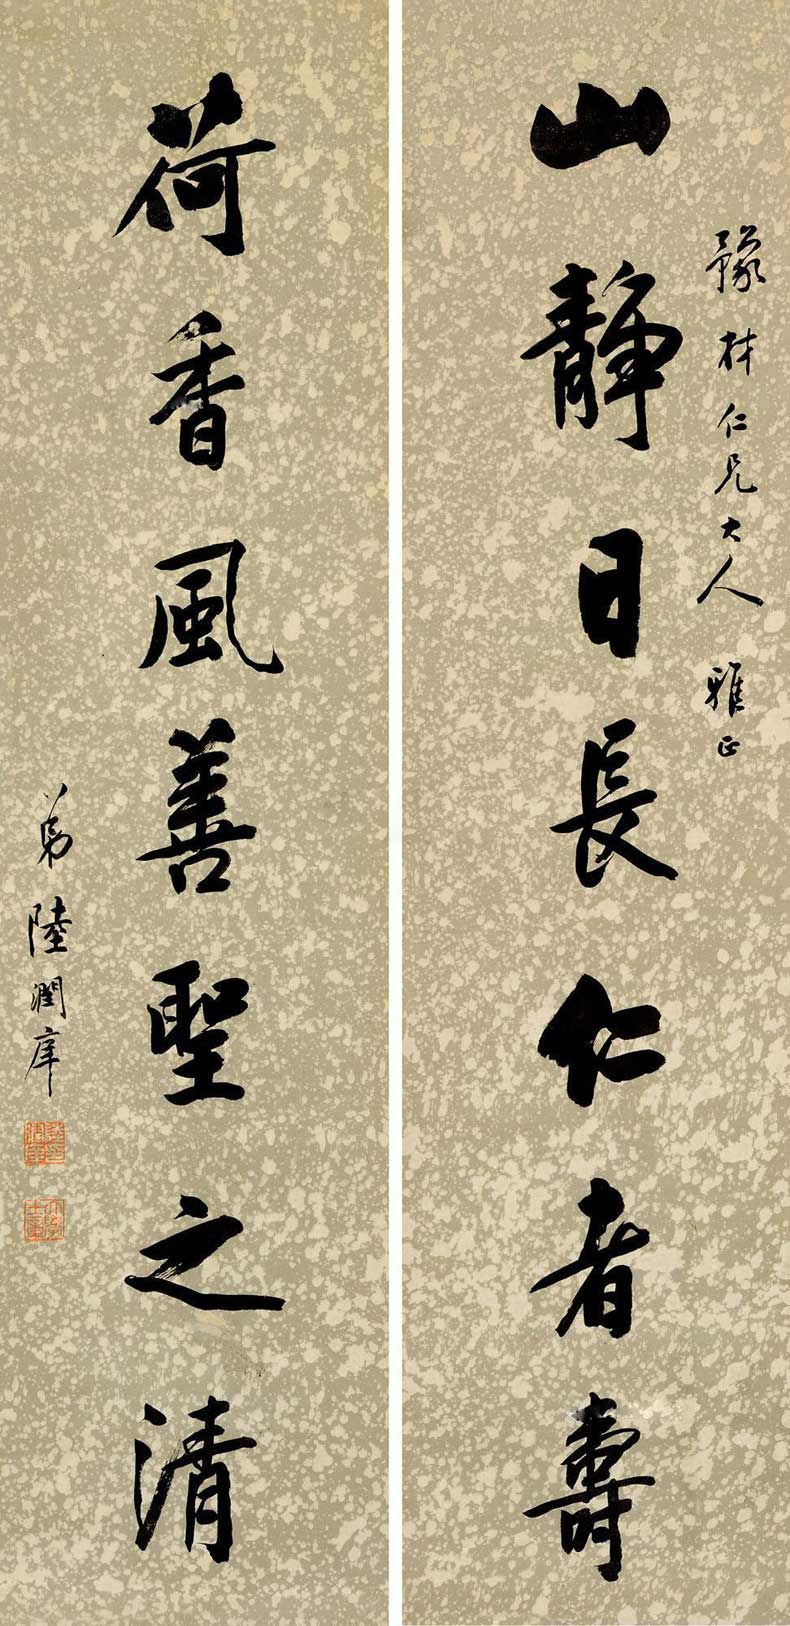 豫材仁兄大人雅正
山靜日長仁者壽
荷香風善聖之清
弟陸潤庠